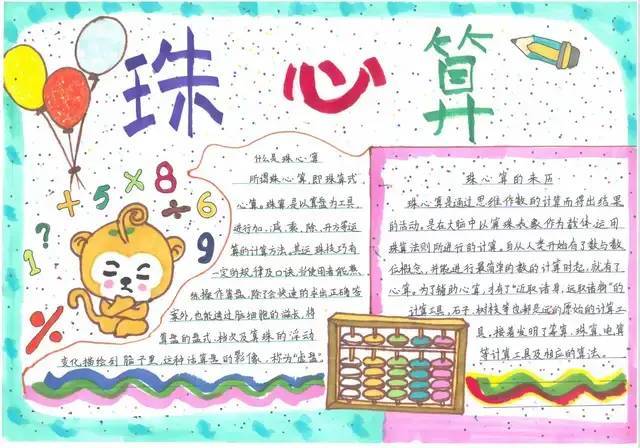 珠心算
1 ? + 5 × 8 ÷ 6 9 %
什么是珠心算
所谓珠心算,即珠算式
心算。珠算是以算盘为工具,
进行加、减、乘、除、开方等运
算的计算方法。其运珠技巧有
一定的规律及口诀,当使用者能熟
练操作算盘,除了会快速的求出正确答
案外,也能透过脑细胞的滋长,将
算盘的盘式、档次及算珠的浮动
变化,描绘到脑子里,这种活算盘的影像,称为“虚盘”
珠心算的来历
珠心算是通过思维作数的计算而得出结果
的活动,是在大脑中以算珠表象作为载体,运用
珠算法则所进行的计算。自从人类开始有了数与数
位概念,并能进行最简单的数的计算时起,就有了
心算。为了辅助心算,才有了“近取诸身,远取诸物”的
计算工具,石子、树枝等也都是远的原始的计算工
具,接着发明了筹算、珠算、电算
等计算工具及相应的算法。